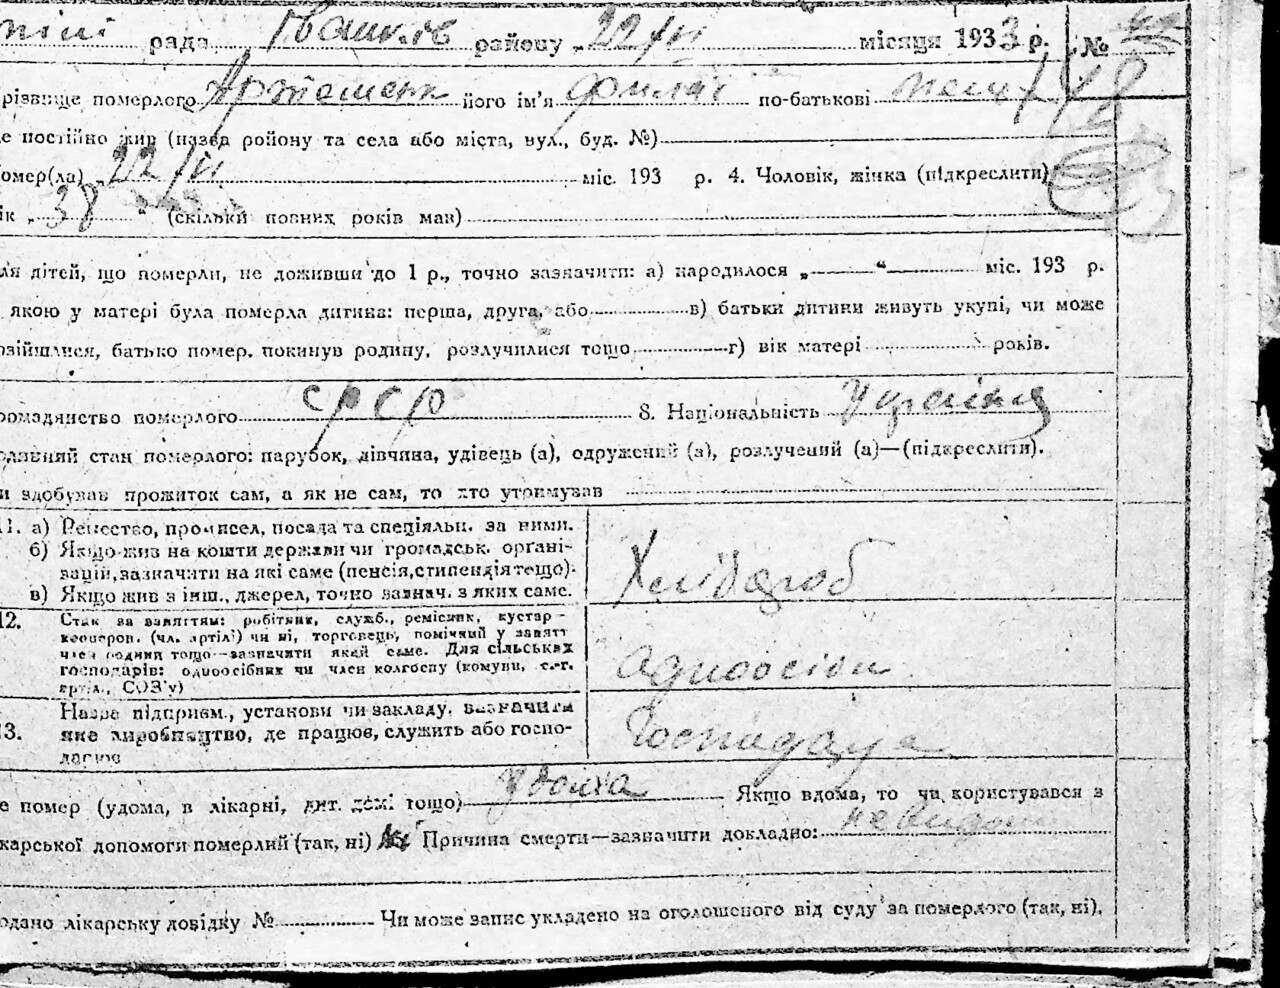 рада Івашків району „22/VI місяця 1933 р. №
різвище померлого Артеменк його ім'я Филип по-батькові
е постійно жив (назва району та села або міста, вул., буд. №)
омер(ла) „22/VI міс. 193 р. 4. Чоловік, жінка (підкреслити)
ік „38 “ (скільки повних років мав)
ля дітей, що померли, не доживши до 1 р., точно зазначити: а) народилося „ “ міс. 193 р.
якою у матері була померла дитина: перша, друга, або в) батьки дитини живуть укупі, чи може
озійшлися, батько помер, покинув родину, розлучилися тощо г) вік матері років.
ромадянство померлого СРСР 8. Національність Україн
одинний стан померлого: парубок, дівчина, удівець (а), одружений (а), розлучений (а)—(підкреслити).
и здобував прожиток сам, а як не сам, то хто утримував
11. а) Ремество, промисел, посада та спеціяльн. за ними.
б) Якщо жив на кошти держави чи громадськ. органі-
зацій, зазначити на які саме (пенсія, стипендія тощо).
в) Якщо жив з інш., джерел, точно зазнач. з яких саме.
Хлібороб
12. Стан за заняттям: робітник, служб., ремісник, кустар-
кооперов. (чл. артілі) чи ні, торговець, помічний у занятт
член родини тощо—зазначити який саме. Для сільських
господарів: одноосібник чи член колгоспу (комуни, с.-г.
артіл., СОЗ'у)
одноосібн
13. Назва підприєм., установи чи закладу, визначити
яке виробництво, де працює, служить або госпо-
дарює
Господарує
е помер (удома, в лікарні, дит. домі тощо) удома Якщо вдома, то чи користувався з
карської допомоги померлий (так, ні) ні Причина смерти—зазначити докладно: невидом
одано лікарську довідку № Чи може запис укладено на оголошеного від суду за померлого (так, ні).